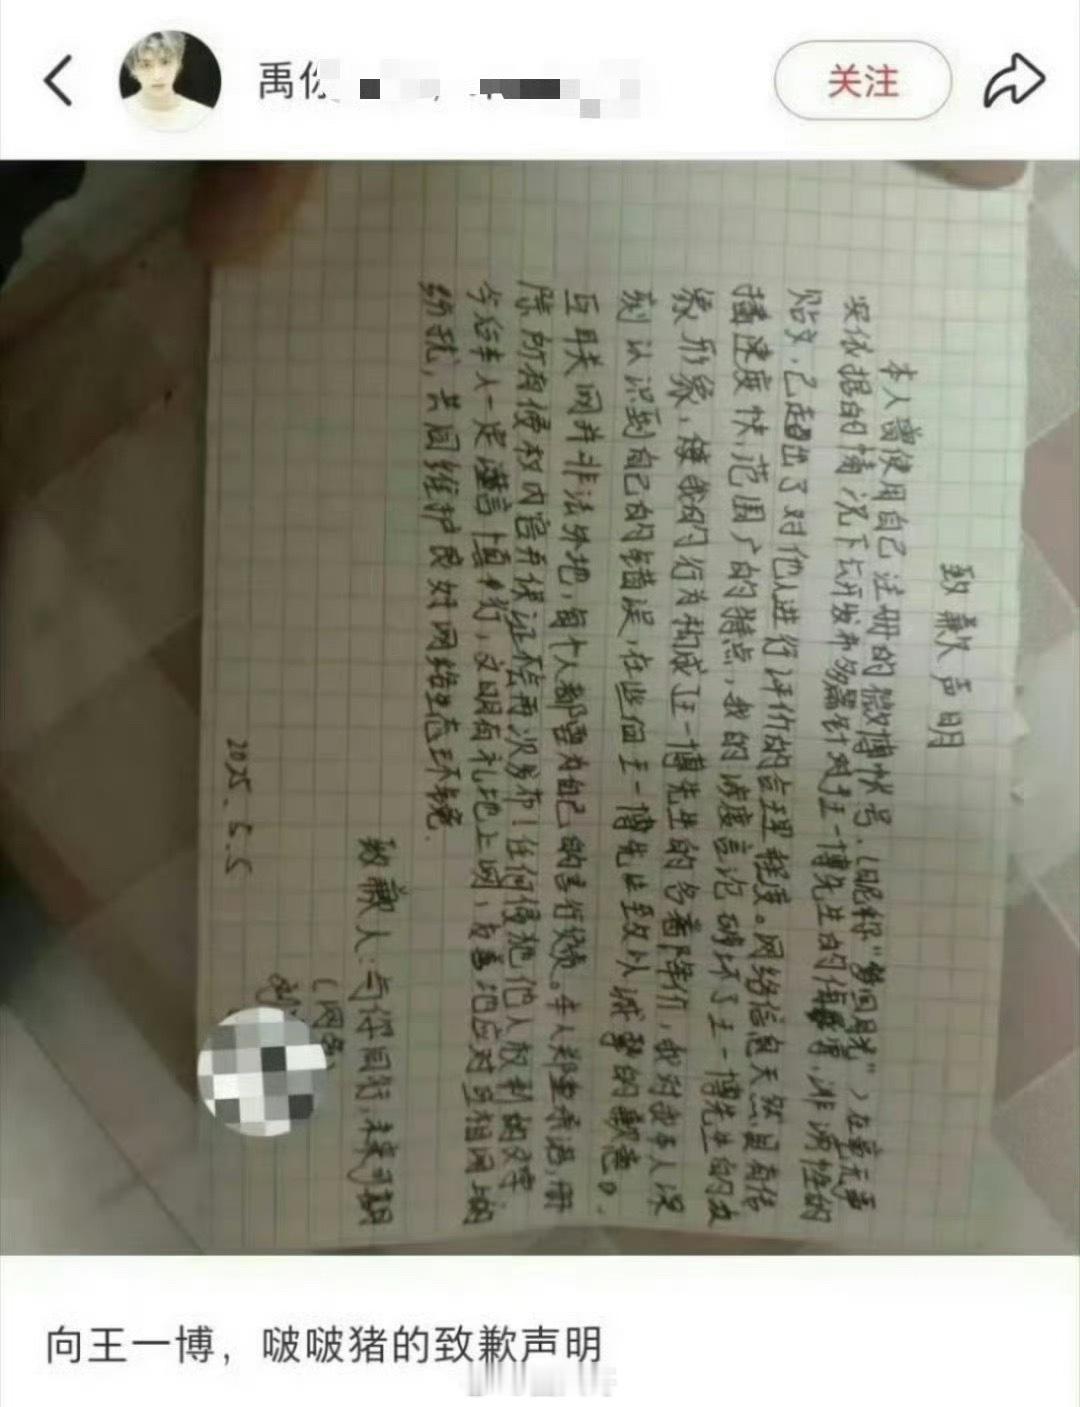 禹
关注
致歉声明
本人曾使用自己注册的微博帐号、(昵称"梦回月光")在毫无事
实依据的情况下公开发布多篇针对王一博先生的侮辱,诽谤性的
贴文,已超出了对他人进行评价的合理程度。网络信息天然具有传
播速度快,范围广的特点,我的涉案言论破坏了王一博先生的
象形象,使我的行为构成王一博先生的名誉降价,我对此本人深
刻认识到自己的错误,在此向王一博先生致以诚挚的歉意。
互联网并非法外地,每个人都要为自己的言行负责。本人郑重承诺,删
除所有侵权内容并保证不会再次发布!任何侵犯他人权利的文字
今后本人一定谨言慎行,文明有礼地上网,友善地应对互联网上的
纷扰,共同维护良好网络生态环境.
致歉人:与你同行,未来可期
(网名)
2025.5.5
向王一博,啵啵猪的致歉声明